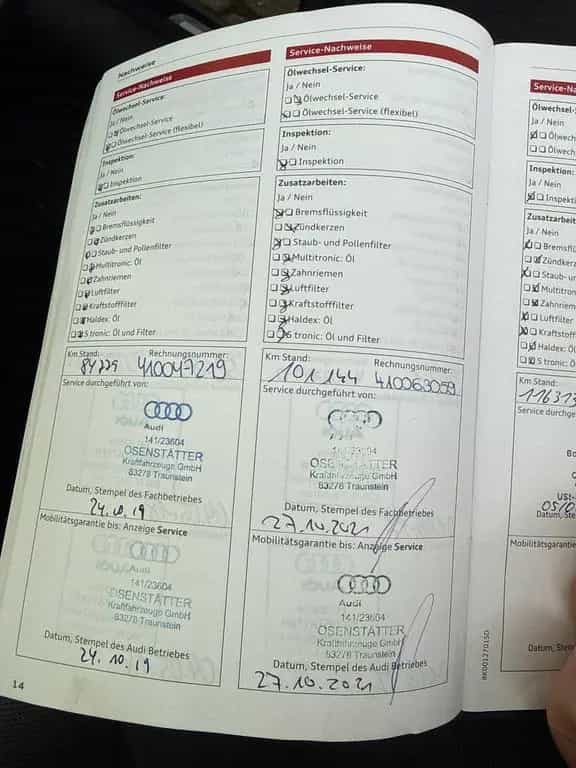 Nachweise
Service-Nachweise
Ölwechsel-Service:
Ja / Nein
Ölwechsel-Service
Ölwechsel-Service (flexibel)
Inspektion:
Ja / Nein
Inspektion
Zusatzarbeiten:
Ja / Nein
Bremsflüssigkeit
Zündkerzen
Staub- und Pollenfilter
Multitronic: Öl
Zahnriemen
Luftfilter
Kraftstofffilter
Haldex: Öl
S tronic: Öl und Filter
Km Stand: Rechnungsnummer:
84229 410047219
Service durchgeführt von:
Audi
141/23604
OSENSTÄTTER
Kraftfahrzeuge GmbH
83278 Traunstein
Datum, Stempel des Fachbetriebes
24.10.19
Mobilitätsgarantie bis: Anzeige Service
Audi
141/23604
OSENSTÄTTER
Kraftfahrzeuge GmbH
83278 Traunstein
Datum, Stempel des Audi Betriebes
24.10.19
14
Service-Nachweise
Ölwechsel-Service:
Ja / Nein
Ölwechsel-Service
Ölwechsel-Service (flexibel)
Inspektion:
Ja / Nein
Inspektion
Zusatzarbeiten:
Ja / Nein
Bremsflüssigkeit
Zündkerzen
Staub- und Pollenfilter
Multitronic: Öl
Zahnriemen
Luftfilter
Kraftstofffilter
Haldex: Öl
S tronic: Öl und Filter
Km Stand: Rechnungsnummer:
101 144 410063059
Service durchgeführt von:
141/23604
OSENSTÄTTER
Kraftfahrzeuge GmbH
83278 Traunstein
Datum, Stempel des Fachbetriebes
27.10.2021
Mobilitätsgarantie bis: Anzeige Service
Audi
141/23604
OSENSTÄTTER
Kraftfahrzeuge GmbH
83278 Traunstein
Datum, Stempel des Audi Betriebes
27.10.2021
Service-Na
Ölwechsel-
Ja / Nein
Ölwechsel
Ölwech
Inspektion:
Ja / Nein
Inspekti
Zusatzarbei
Ja / Nein
Bremsflü
Zündkerz
Staub- u
Multitron
Zahnriem
Luftfilter
Kraftstoff
Haldex: Öl
S tronic: Öl
Km Stand:
Service durchge
Bo
USt-
05/0
Datum, Ste
Mobilitätsgarantie
Datum, Ste
8K0012701SD